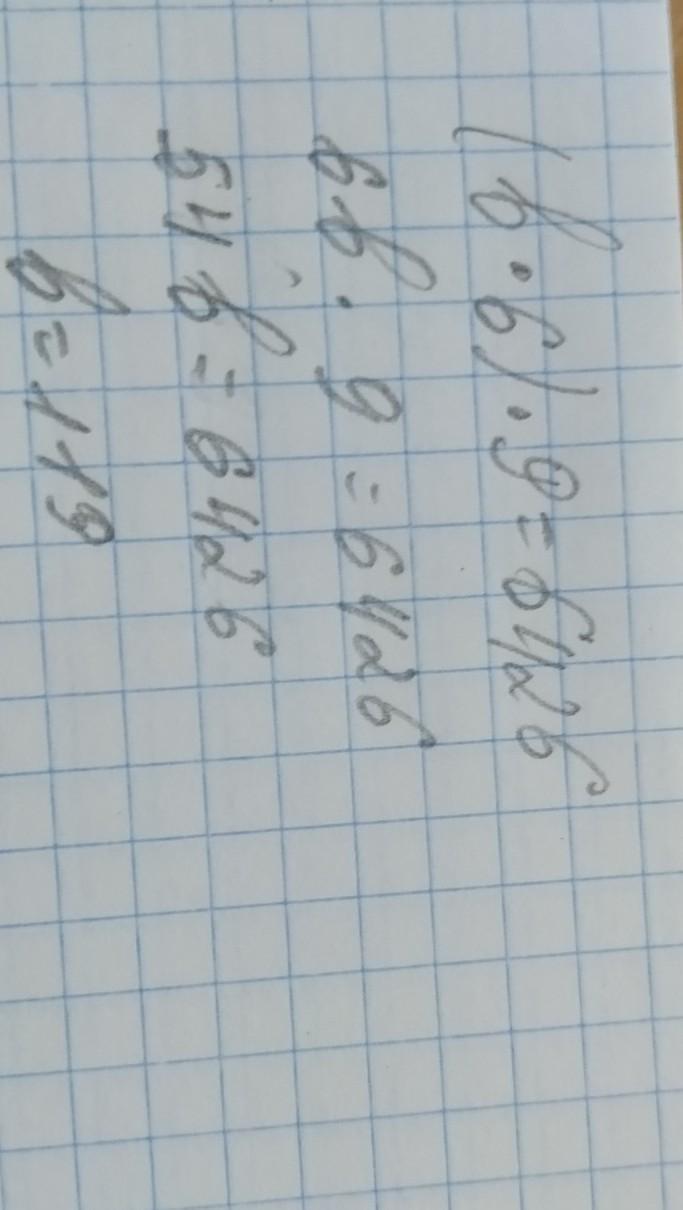 (b·6)·9=6426
6b·9=6426
54b=6426
b=119